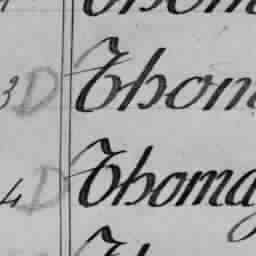 3 D Thom
4 D Thoma